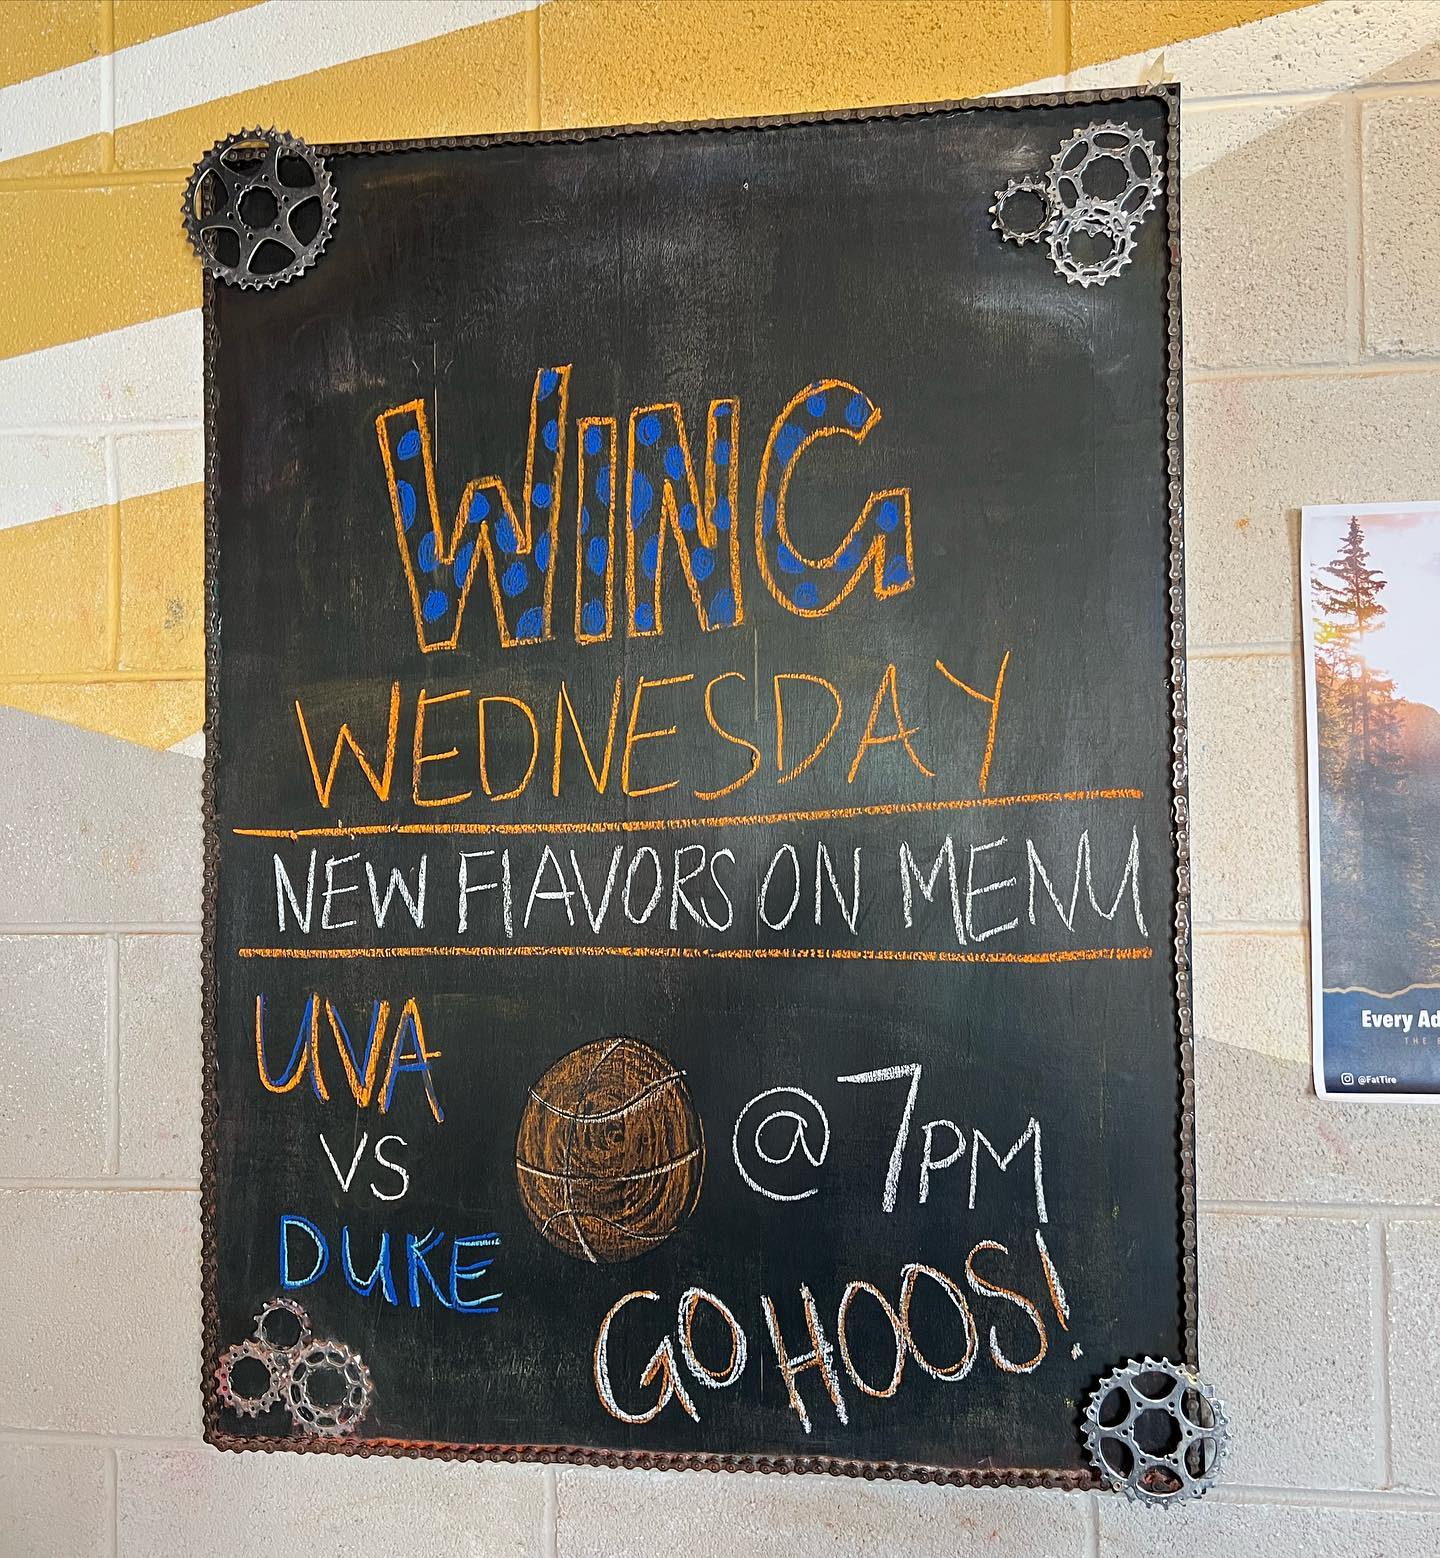 WING
WEDNESDAY
NEW FlAVORS ON MENU
UVA
VS
DUKE
@ 7PM
GO HOOS!
Every Ad
THE
@FatTire